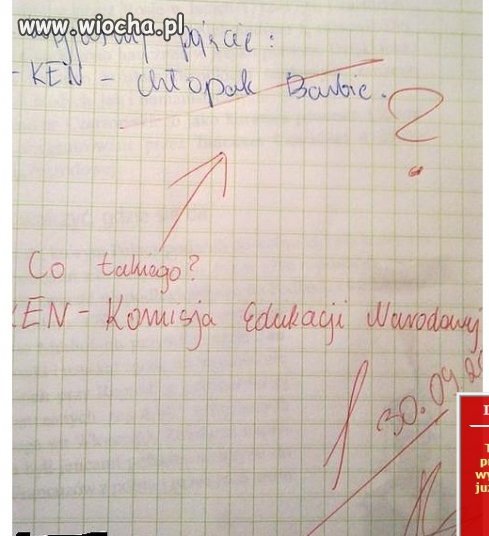 www.wiocha.pl
pojęcie :
- KEN - chłopak Barbie.
?
Co takiego?
KEN - Komisja Edukacji Narodowej
1 30.09.20